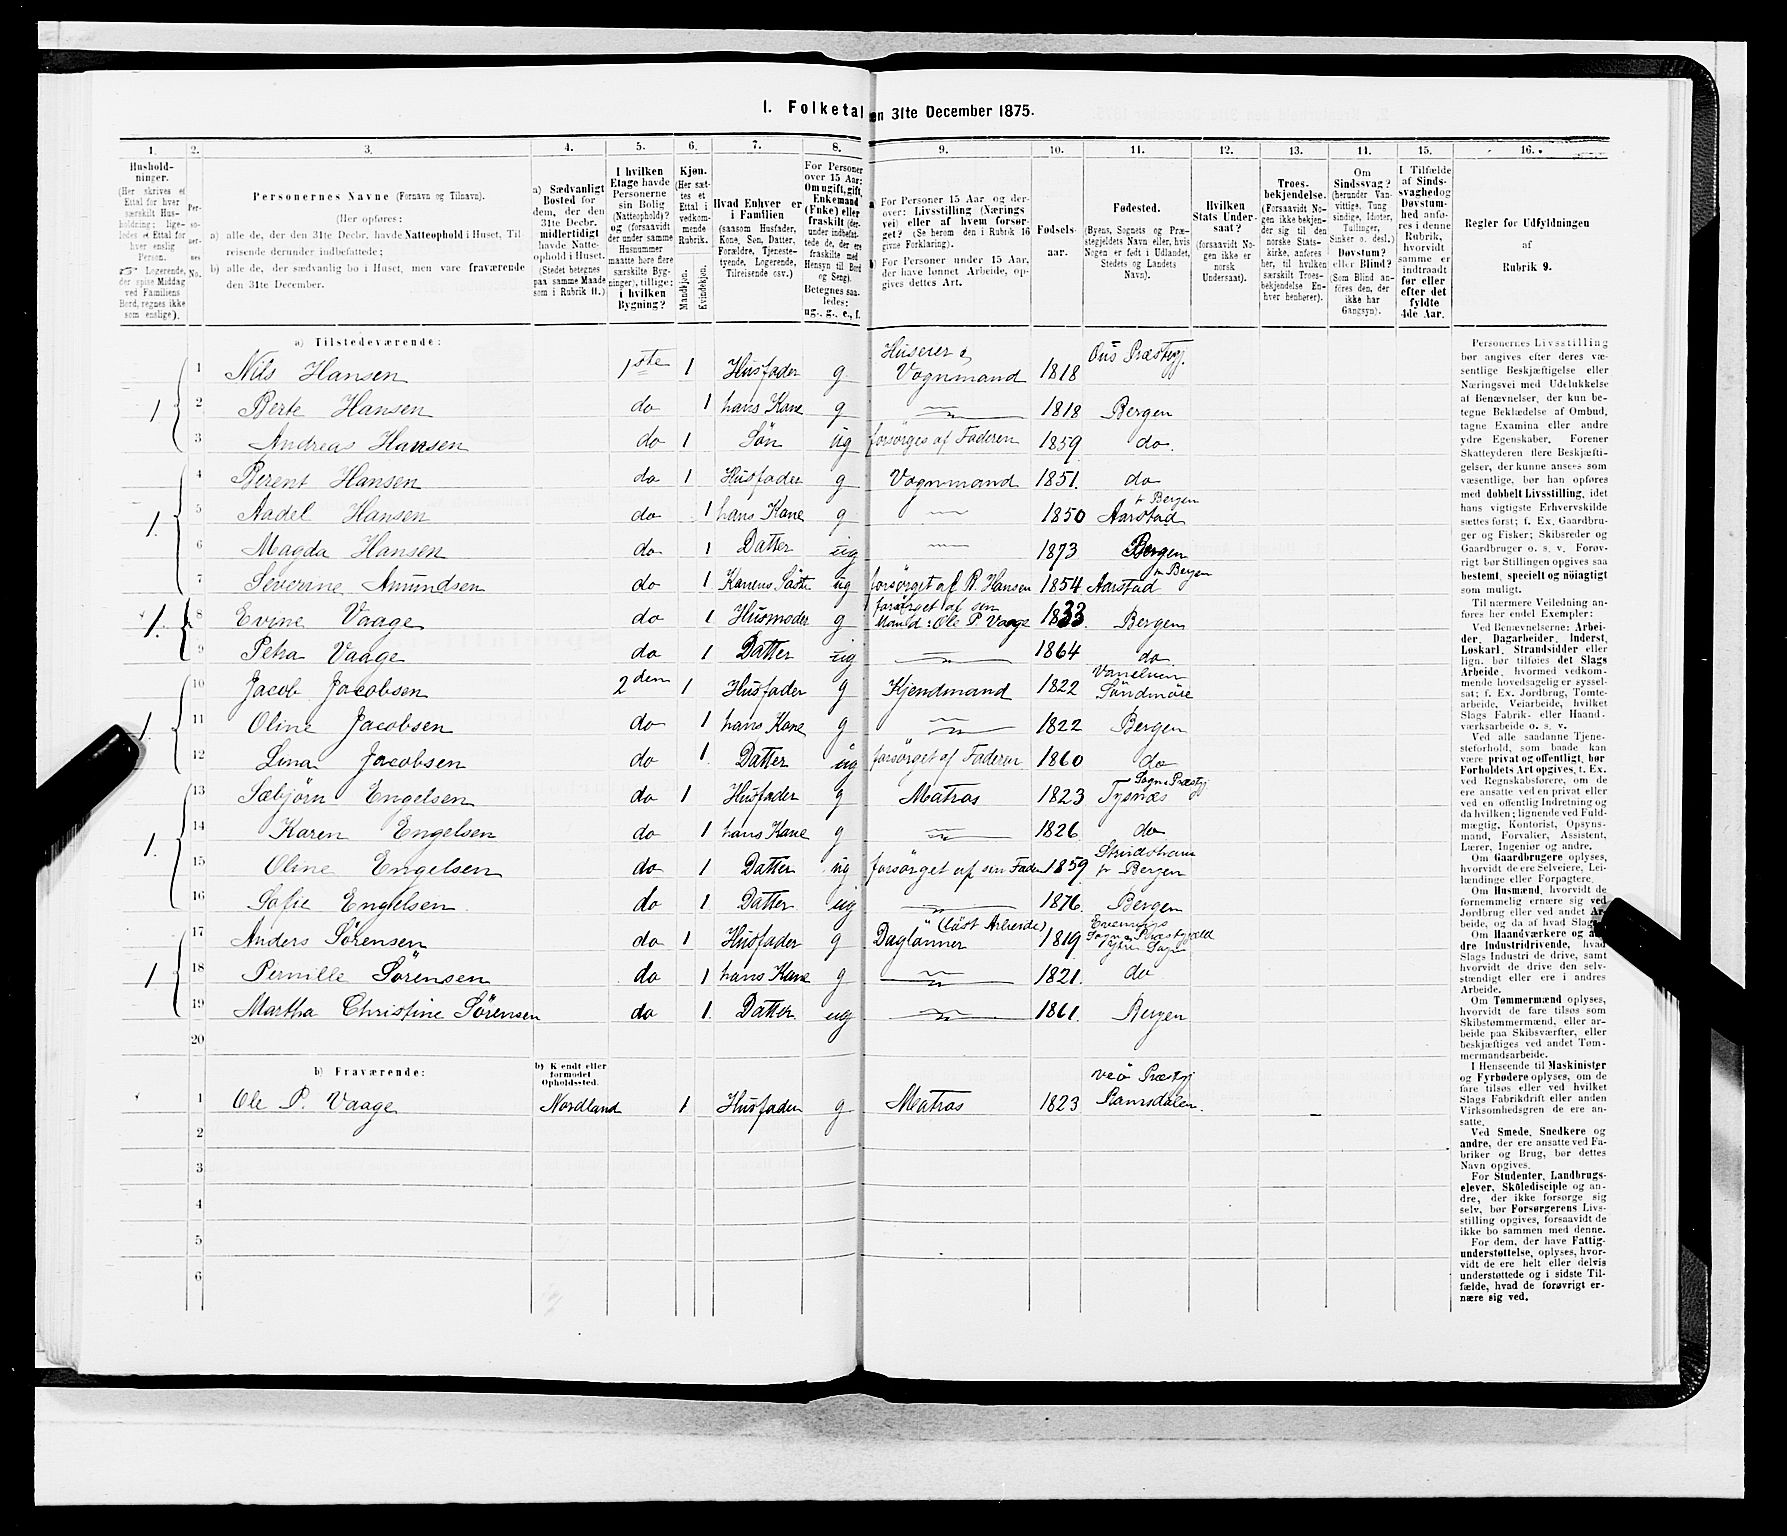 I. Folketal den 31te December 1875.
1. 2. 3. 4. 5. 6. 7. 8. 9. 10. 11. 12. 13. 11. 15. 16.
Husholdninger.
(Her skrives et Ettal for hver særskilt Husholdning; ligeledes et Ettal for hver enslig Person.
☞ Logerende, der spise Middag ved Familiens Bord, regnes ikke som enslige).
Personernes No.
Personernes Navne (Fornavn og Tilnavn).
(Her opføres:
a) alle de, der den 31te Decbr. havde Natteophold i Huset, Tilreisende derunder indbefattede;
b) alle de, der sædvanlig bo i Huset, men vare fraværende den 31te December.
a) Sædvanligt Bosted for dem, der den 31te Decbr. midlertidigt havde Natteophold i Huset. (Stedet betegnes paa samme Maade som i Rubrik 11.)
I hvilken Etage havde Personerne sin Bolig (Natteophold)? og (forsaavidt der under samme Husnummer maatte høre flere særskilte Bygninger), tillige: i hvilken Bygning?
Kjøn. (Her sættes et Ettal i vedkommende Rubrik.
Mandkjøn. Kvindekjøn.
Hvad Enhver er i Familien (saasom Husfader, Kone, Søn, Datter, Forældre, Tjenestetyende, Logerende, Tilreisende osv.)
For Personer over 15 Aar: Om ugift, gift, Enkemand (Enke) eller fraskilt (derunder indbefattede de, der ere fraskilte med Hensyn til Bord og Seng). Betegnes saaledes: ug., g., e., f.
a For Personer 15 Aar og derover: Livsstilling (Nærings vei) eller af hvem forsørget? (Se herom den i Rubrik 16 givne Forklaring).
b For Personer under 15 Aar, der have lønnet Arbeide, opgives dettes Art.
Fødselsaar.
Fødested.
(Byens, Sognets og Præstegjeldets Navn eller, hvis Nogen er født i Udlandet, Stedets og Landets Navn).
Hvilken Stats Undersaat? (forsaavidt Nogen ikke er norsk Undersaat).
Troesbekjendelse. (Forsaavidt Nogen ikke bekjender sig til den norske Statskirke, anføres her, til hvilken særskilt Troesbekjendelse Enhver henhører).
Om Sindssvag? (herunder Vanvittige, Tungsindige, Idioter, Tullinger, Sinker o. desl.) Døvstum? eller Blind? (Som Blind anføres den, der ikke har Gangsyn).
I Tilfælde af Sindssvaghed og Døvstumhed anføres i denne Rubrik, hvorvidt samme er indtraadt før eller efter det fyldte 4de Aar.
Regler for Udfyldningen af Rubrik 9.
a) Tilstedeværende:
1 Nils Hansen 1ste 1 Husfader g Huseier & Vognmand 1818 Præstegj.
1 2 Berte Hansen do 1 hans Kone g 1818 Bergen
3 Andreas Hansen do 1 Søn ug forsørges af Faderen 1859 do.
4 Berent Hansen do 1 Husfader g Vognmand 1851. do
1. 5 Aadel Hansen do 1 hans Kone g 1850 Aarstad Bergen
6 Magda Hansen do 1 Datter ug 1873 Bergen
7 Severine Amundsen do 1 Konens Søster ug forsørget af B. Hansen 1854 Aarstad Bergen
1. 8 Evine Vaage do 1 Husmoder g forsørget af sin Mand: Ole P. Vaage 1833 Bergen
9 Petra Vaage do 1 Datter ug 1864 do
10 Jacob Jacobsen 2den 1 Husfader g Kjendmand 1822 Søndmøre
1. 11 Oline Jacobsen do 1 hans Kone g 1822 Bergen
12 Lina Jacobsen do 1 Datter ug forsørget af Faderen 1860 do
13 Sæbjørn Engelsen do 1 Husfader g Matros 1823 Tysnæs Sogn & Præstgj
1. 14 Karen Engelsen do 1 hans Kone g 1826 do
15 Oline Engelsen do 1 Datter ug. forsørget af sin Fader 1859 Bergen
16 Sofie Engelsen do 1 Datter ug 1876 Bergen
17 Anders Sørensen do 1 Husfader g Daglønner (løst Arbeide) 1819 Sogn & Præstgjæld Ytre Sogn
1 18 Pernille Sörensen do 1 hans Kone g 1821. do
19 Martha Christine Sörensen do 1. Datter ug 1861. Bergen
20
b) Fraværende:
b) Kjendt eller formodet Opholdssted.
1 Ole P. Vaage Nordland 1 Husfader g Matros 1823 Veö Præstgj Ramsdalen.
2
3
4
5
6
Personernes Livsstilling
bør angives efter deres væ-
sentlige Beskjæftigelse eller
Næringsvei med Udelukkelse
af Benævnelser, der kun be-
tegne Beklædelse af Ombud,
tagne Examina eller andre
ydre Egenskaber. Forener
Skatteyderen flere Beskjæfti-
gelser, der kunne ansees som
væsentlige, bør han opføres
med dobbelt Livsstilling, idet
hans vigtigste Erhvervskilde
sættes først; f. Ex. Gaardbru-
ger og Fisker; Skibsreder og
Gaardbruger o. s. v. Forøv-
rigt bør Stillingen opgives saa
bestemt, specielt og nöiagtigt
som muligt.
Til nærmere Veiledning an-
føres her endel Exempler:
Ved Benævnelserne: Arbei-
der, Dagarbeider, Inderst,
Løskarl, Strandsidder eller
lign. bør tilføies det Slags
Arbeide, hvormed vedkom-
mende hovedsagelig er syssel-
sat; f. Ex. Jordbrug, Tomte-
arbeide, Veiarbeide, hvilket
Slags Fabrik- eller Haand-
værksarbeide o. s. v.
Ved alle saadanne Tjene-
steforhold, som baade kan
være privat og offentligt, bør
Forholdets Art opgives, f. Ex.
ved Regnskabsførere, om de
ere ansatte ved en privat eller
ved en offentlig Indretning og
da hvilken; lignende ved Fuld-
mægtig, Kontorist, Opyns-
mand, Forvalter, Assistent,
Lærer, Ingeniør og andre.
Om Gaardbrugere oplyses,
hvorvidt de ere Selveiere, Lei-
lændinge eller Forpagtere.
Om Husmænd, hvorvidt de
fornemmelig ernære sig ved
Jordbrug eller ved andet Ar-
beide, og da af hvad Slags.
Om Haandværkere og an-
dre Industridrivende, hvad
Slags Industri de drive, samt
hvorvidt de drive den selv-
stændigt eller ere i andres
Arbeide.
Om Tømmermænd oplyses,
hvorvidt de fare tilsøs som
Skibstømmermænd, eller ar-
beide paa Skibsværfter, eller
beskjæftiges ved andet Tøm-
mermandsarbeide.
I Henseende til Maskinister
og Fyrbødere oplyses, om de
fare tilsøs eller ved hvilket
Slags Fabrikdrift eller anden
Virksomhedsgren de ere an-
satte.
Ved Smede, Snedkere og
andre, der ere ansatte ved Fa-
briker og Brug, bør dettes
Navn opgives.
For Studenter, Landbrugs-
elever, Skoledisciple og an-
dre, der ikke forsørge sig
selv, bør Forsørgerens Livs-
stilling opgives, forsaavidt de
ikke bo sammen med denne.
For dem, der have Fattig-
understøttelse, oplyses, hvor-
vidt de ere helt eller delvis
understøttede og i sidste Til-
fælde, hvad de forøvrigt er-
nære sig ved.